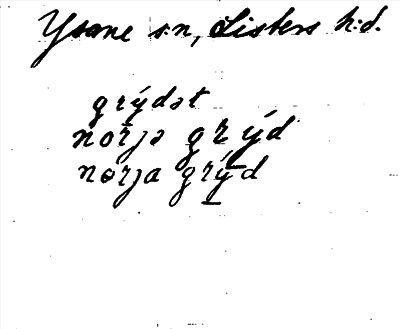 Ysane sn, Listers h:d.
grýdət
nørjə grýd
nørja grýd